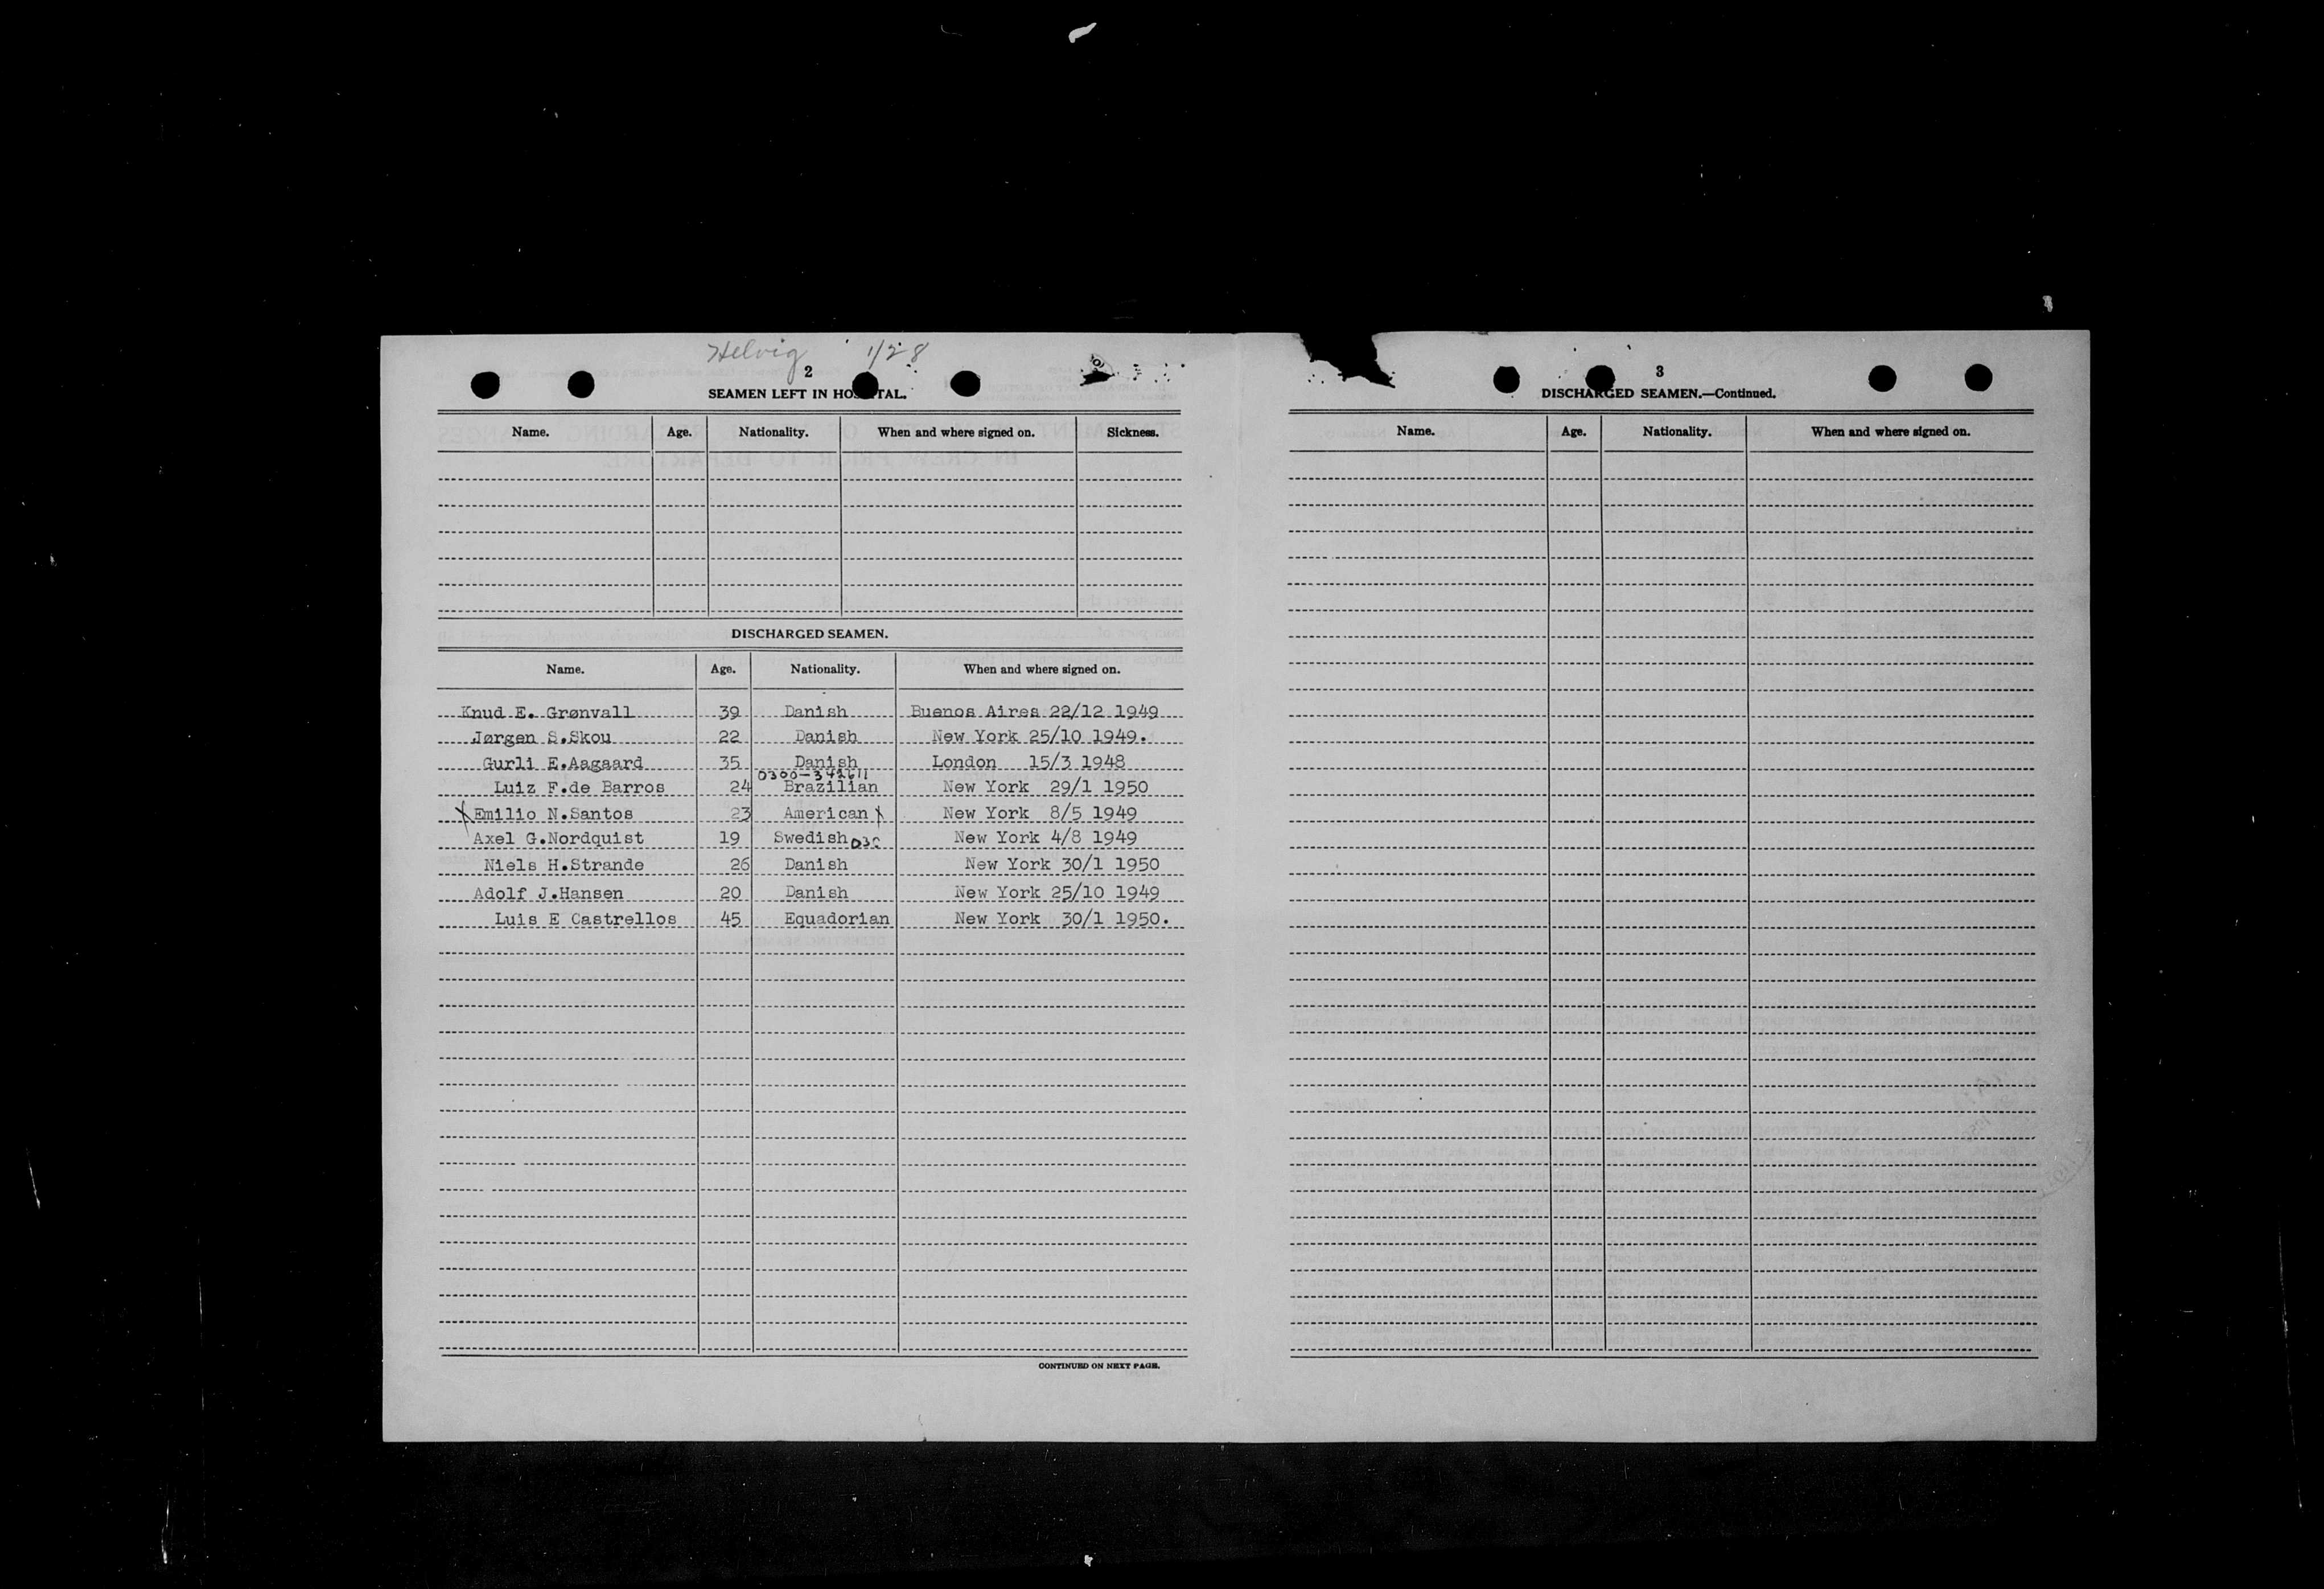 Helvig 1/28
2
SEAMEN LEFT IN HOSPITAL.
Name. Age. Nationality. When and where signed on. Sickness.
DISCHARGED SEAMEN.
Name. Age. Nationality. When and where signed on.
Knud E. Grønvall 39 Danish Buenos Aires 22/12 1949
Jørgen S.Skou 22 Danish New York 25/10 1949.
Gurli E.Aagaard 35 Danish London 15/3 1948
0300-342611
Luiz F.de Barros 24 Brazilian New York 29/1 1950
X Emilio N.Santos 23 American X New York 8/5 1949
Axel G.Nordquist 19 Swedish 030 New York 4/8 1949
Niels H.Strande 26 Danish New York 30/1 1950
Adolf J.Hansen 20 Danish New York 25/10 1949
Luis E Castrellos 45 Equadorian New York 30/1 1950.
CONTINUED ON NEXT PAGE.
3
DISCHARGED SEAMEN.—Continued.
Name. Age. Nationality. When and where signed on.